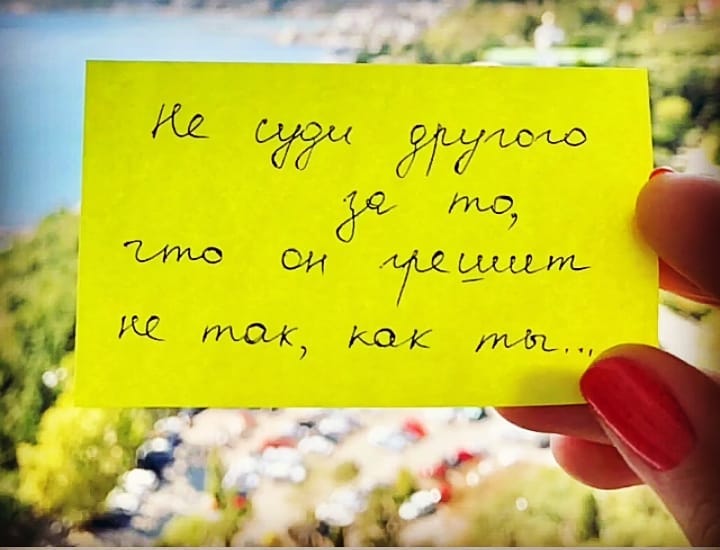 Не суди другого
за то,
что он грешит
не так, как ты...